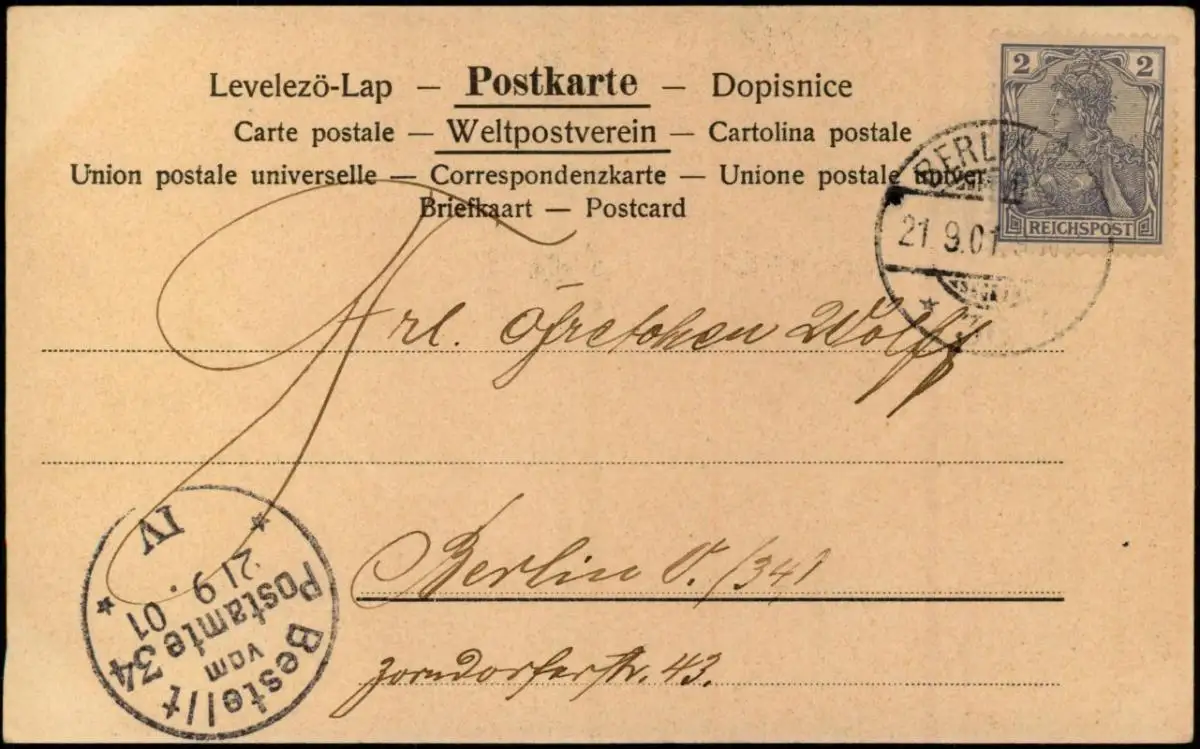 Levelezö-Lap — Postkarte — Dopisnice
Carte postale — Weltpostverein — Cartolina postale
Union postale universelle — Correspondenzkarte — Unione postale univer
Briefkaart — Postcard
2 2
REICHSPOST
BERLIN
21.9.01
Frl. Gretchen Wolff
Berlin O. /34/
Zorndorferstr. 43.
Bestellt
vom
Postamte 34
21 9. 01
IV